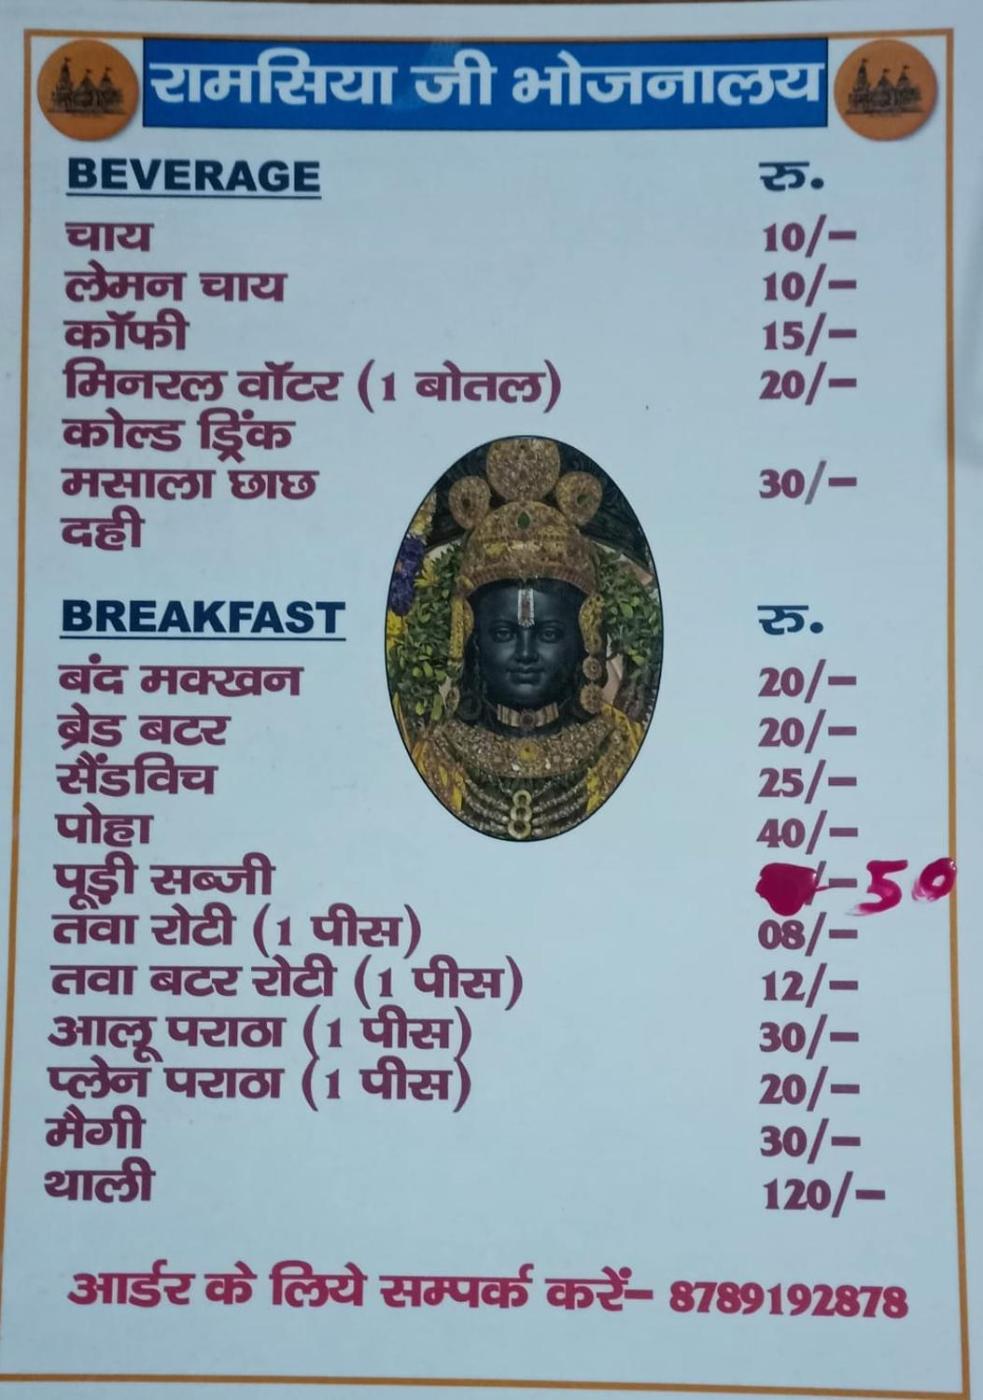 रामसिया जी भोजनालय
BEVERAGE रु.
चाय 10/-
लेमन चाय 10/-
कॉफी 15/-
मिनरल वॉटर (1 बोतल) 20/-
कोल्ड ड्रिंक
मसाला छाछ 30/-
दही
BREAKFAST रु.
बंद मक्खन 20/-
ब्रेड बटर 20/-
सैंडविच 25/-
पोहा 40/-
पूड़ी सब्जी /- 50
तवा रोटी (1 पीस) 08/-
तवा बटर रोटी (1 पीस) 12/-
आलू पराठा (1 पीस) 30/-
प्लेन पराठा (1 पीस) 20/-
मैगी 30/-
थाली 120/-
आर्डर के लिये सम्पर्क करें- 8789192878